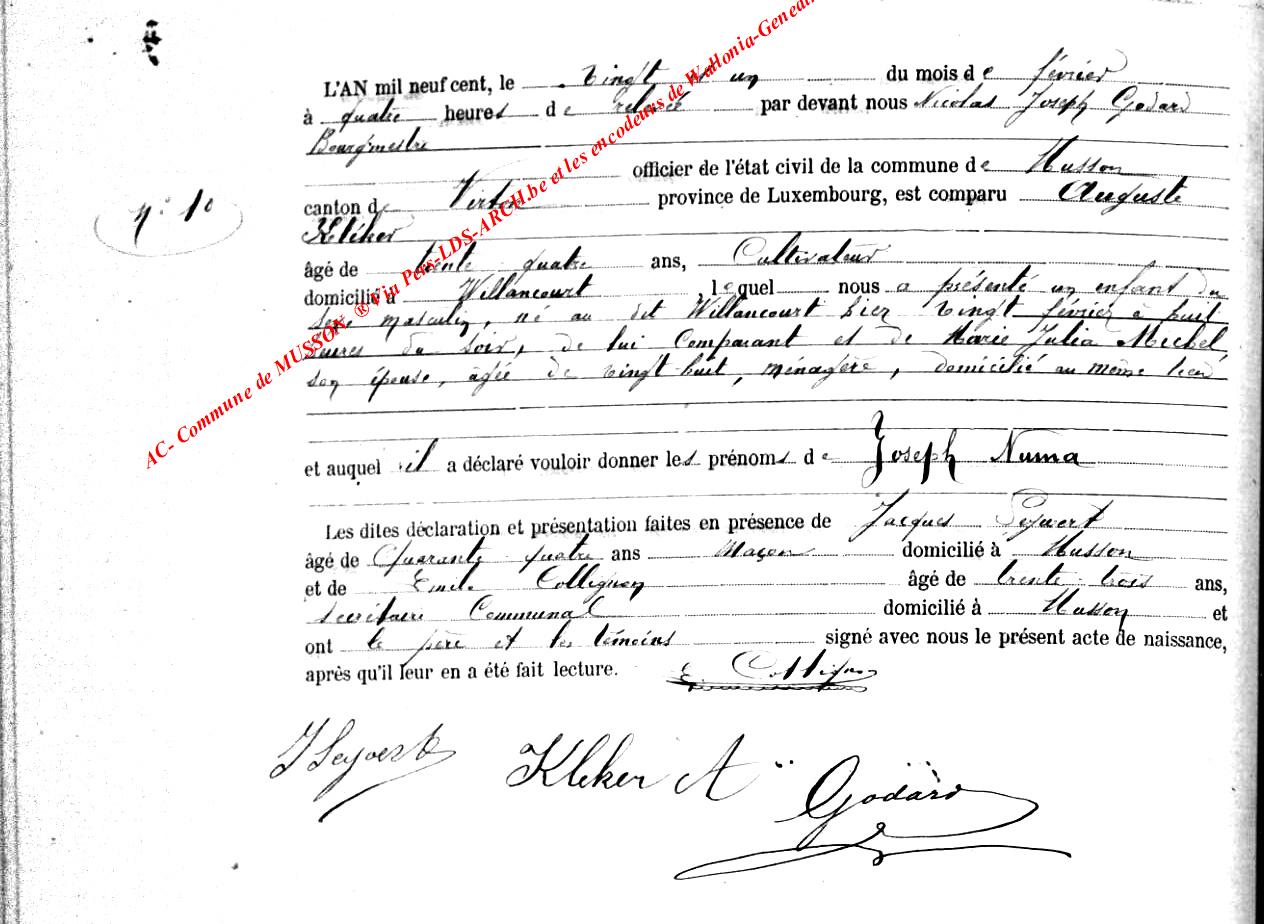 L'AN mil neuf cent, le vingt et un du mois de février
à quatre heures de relevé par devant nous Nicolas Joseph Godard
Bourgmestre
officier de l'état civil de la commune de Musson
canton de Virton province de Luxembourg, est comparu Auguste
Kléker
âgé de trente quatre ans, Cultivateur
domicilié à Willancourt, lequel nous a présenté un enfant du
sexe masculin, né au dit Willancourt hier vingt février à huit
heures du soir, de lui Comparant et de Marie Julia Michel,
son épouse, agée de vingt huit, ménagère, domicilié au même lieu
et auquel il a déclaré vouloir donner les prénoms de Joseph Numa
Les dites déclaration et présentation faites en présence de Jacques
âgé de Quarante quatre ans Maçon domicilié à Musson
et de Emile Collignon âgé de trente trois ans,
secrétaire Communal domicilié à Musson et
ont le père et les témoins signé avec nous le présent acte de naissance,
après qu'il leur en a été fait lecture. E. Collignon
Kleker A
Godard
N° 10
AC- Commune de MUSSON ®Via Pers-LDS-ARCH.be et les encodeurs de Wallonia-Genealo